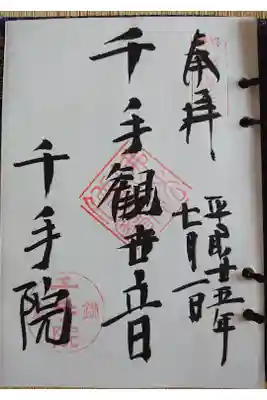 奉拝
平成十五年
七月一日
千手観世音
千手院